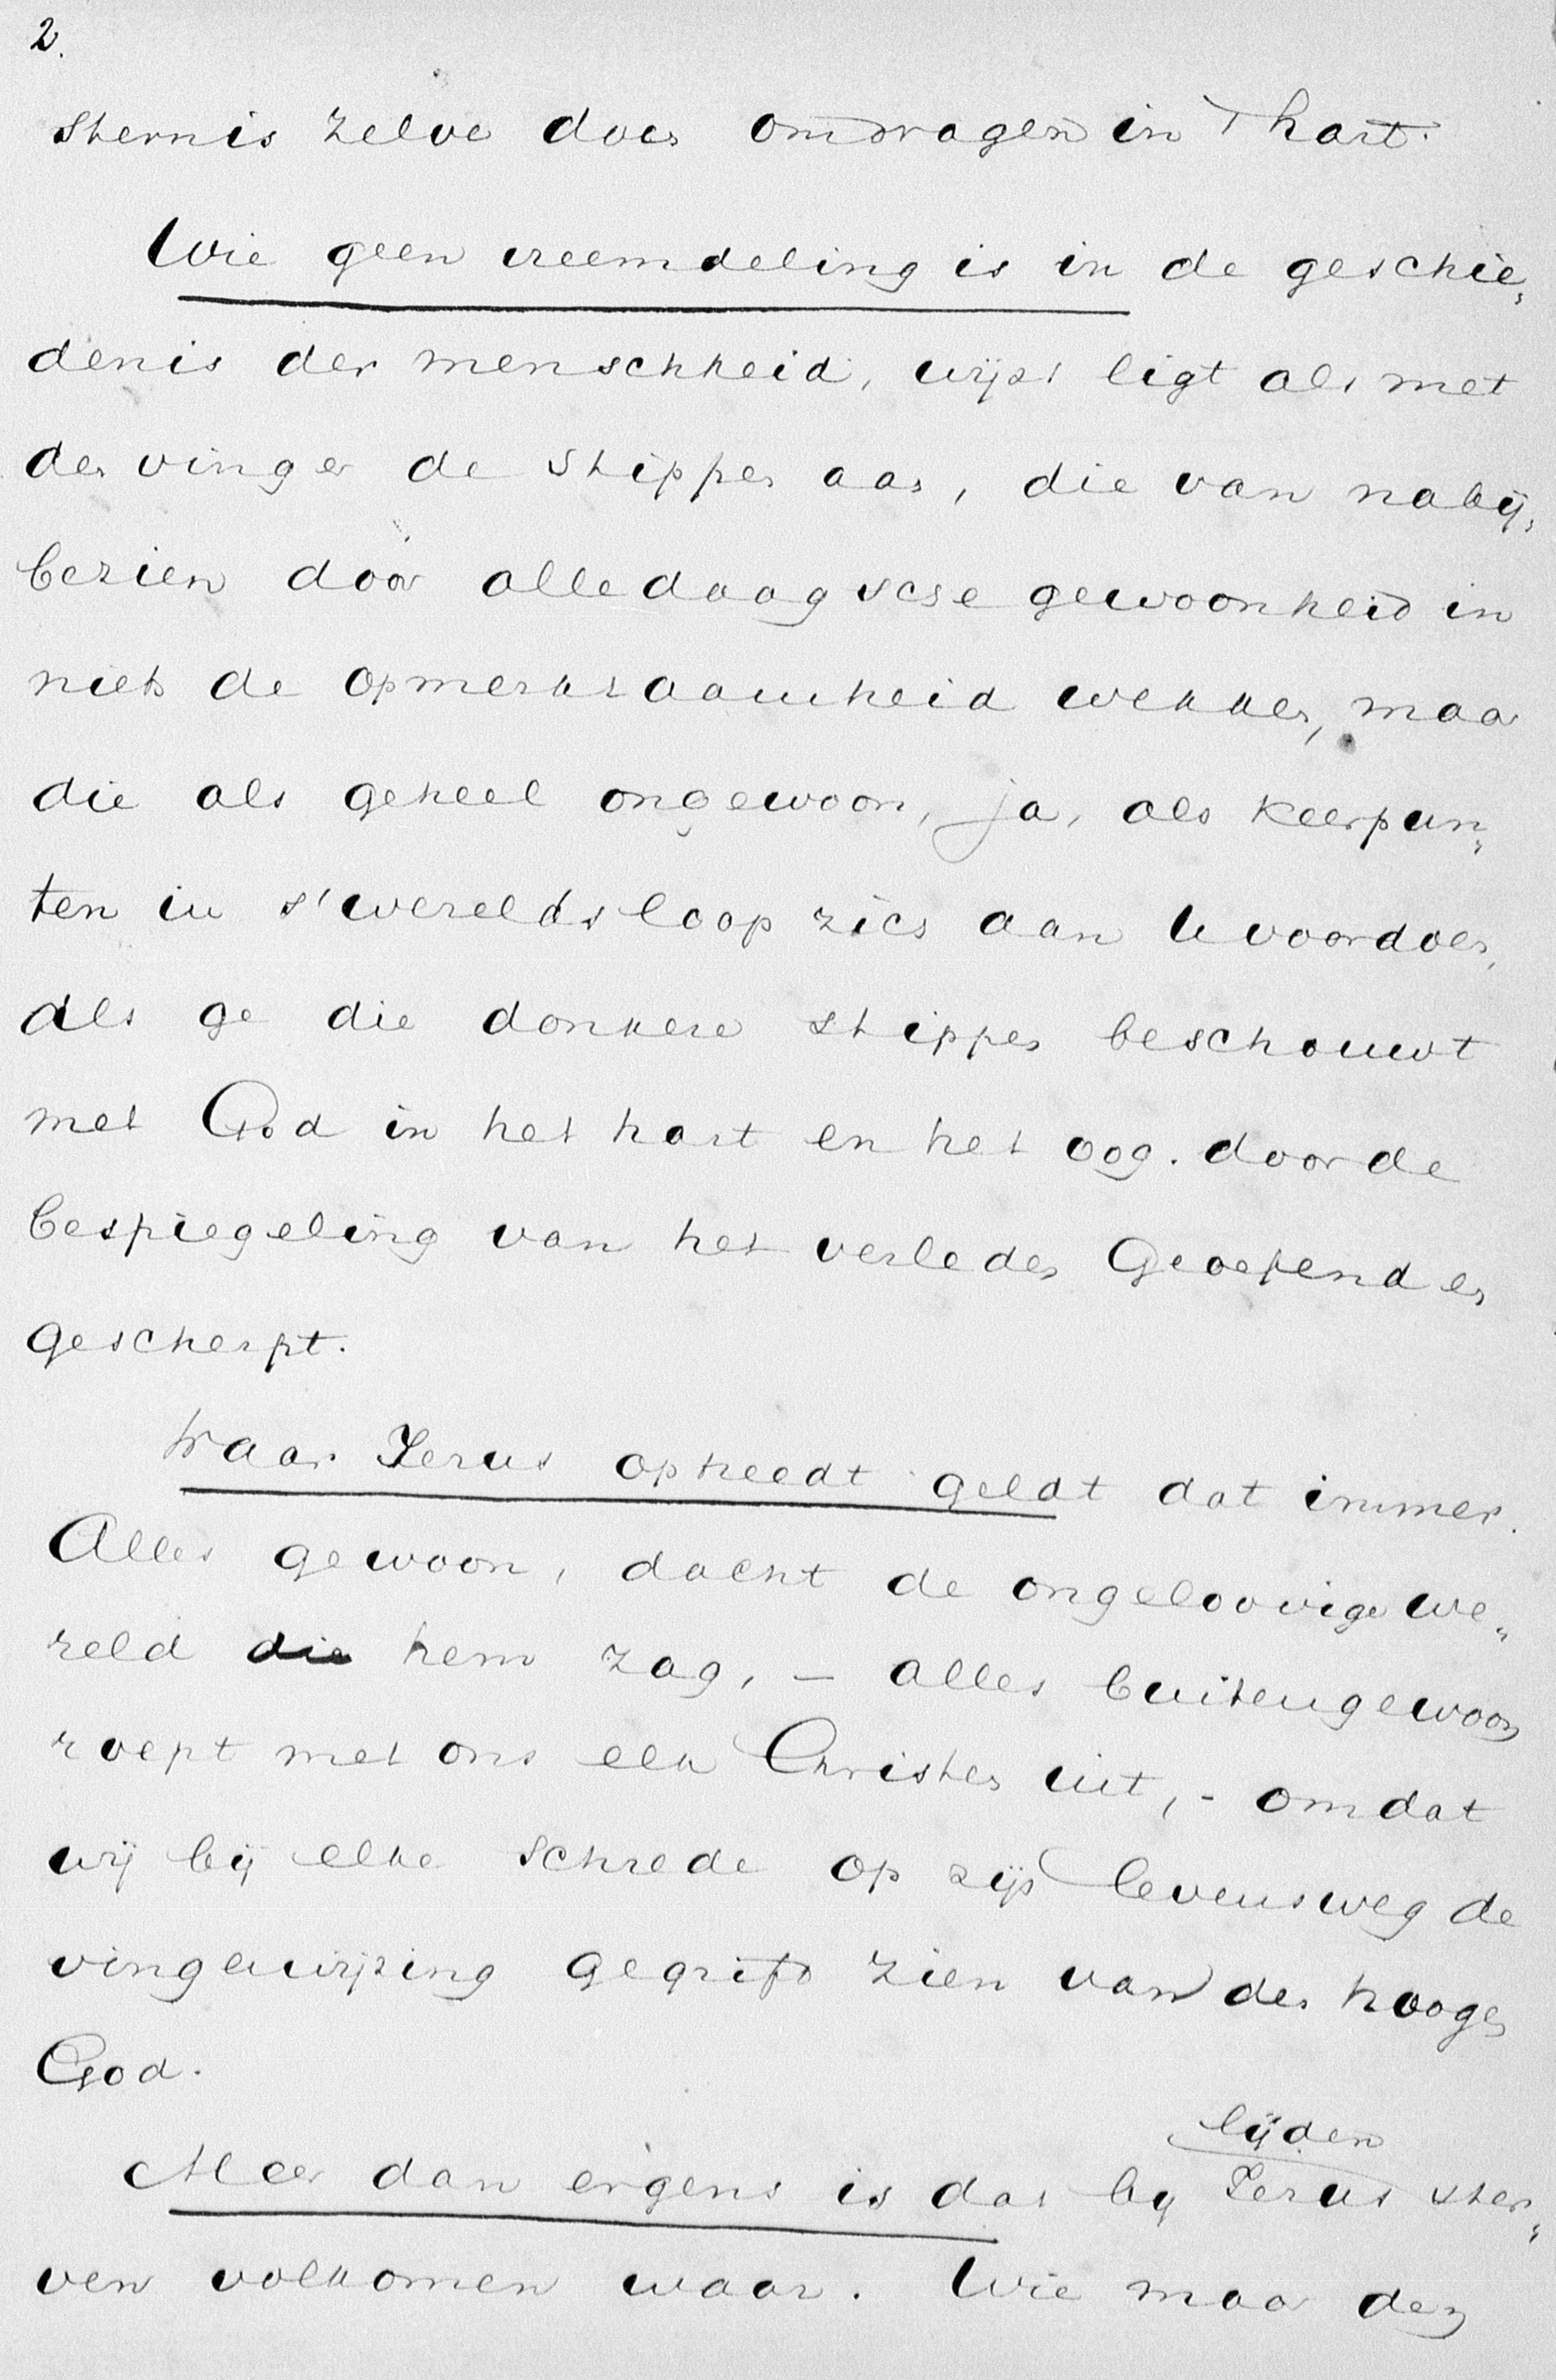 2.
sternis zelve doen omdragen in 't hart.
Wie geen vreemdeling is in de geschie„
denis der menschheid, wijst ligt als met
den vinger de stippen aan, die van nabij„
bezien door alledaagsche gewoonheid in
niets de opmerkzaamheid wekken, maar
die als geheel ongewoon, ja, als keerpun„
ten in s'werelds loop zich aan U voordoen,
als ge die donkere stippen beschouwt
met God in het hart en het oog. door de
bespiegeling van het verleden Geoefend en
gescherpt.
Waar Jezus optreedt geldt dat immer.
Alles gewoon, dacht de ongeloovige we„
reld die hem zag, – alles buitengewoon
roept met ons elk Christen uit, - omdat
wij bij elke schrede op zijn levensweg de
vingerwijzing gegrift zien van den hoogen
God.
lijden
Meer dan ergens is dat bij Jezus ster„
ven volkomen waar. Wie maar den